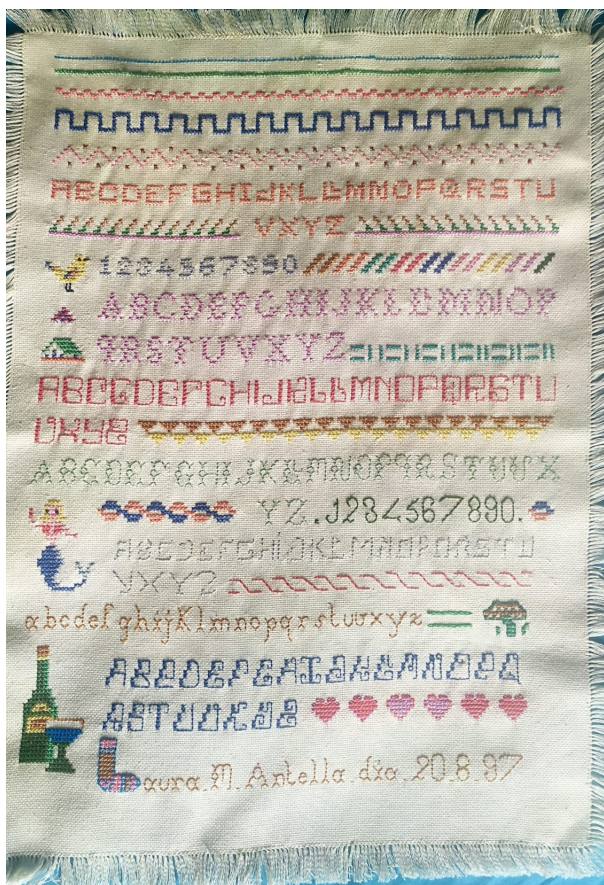 ABCDEFGHIJKLLLMNOPQRSTU
VXYZ
1234567890
ABCDEFGHIJKLLLMNOP
QRSTUVXYZ
ABCDEFGHIJKLLLMNOPQRSTU
VXYZ
ABCDEFGHIJKLMNOPQRSTUVX
YZ.1234567890.
ABCDEFGHIJKLMNOPQRSTU
VXYZ
abcdefghijKlmnopqrstuvxyz
ABCDEFGHIJKLMNOPQ
RSTUVXYZ
Laura M. Antella día 20.8.97